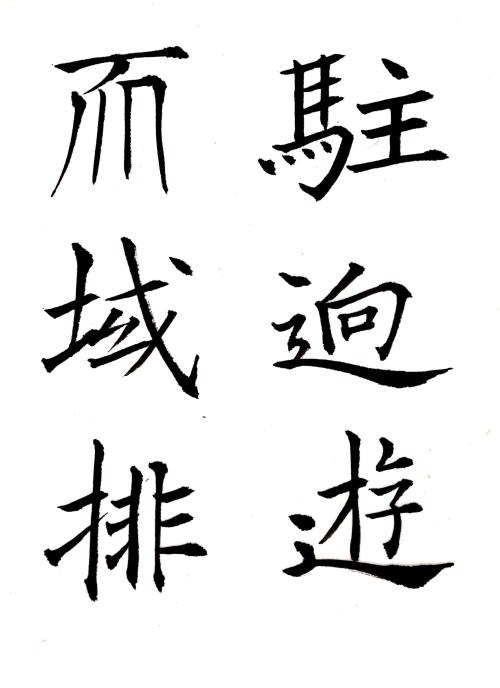 駐逈遊
而域排